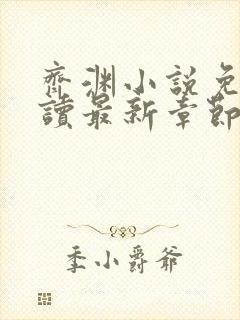 齊淵小説免
讀最新章節
季小爵爺